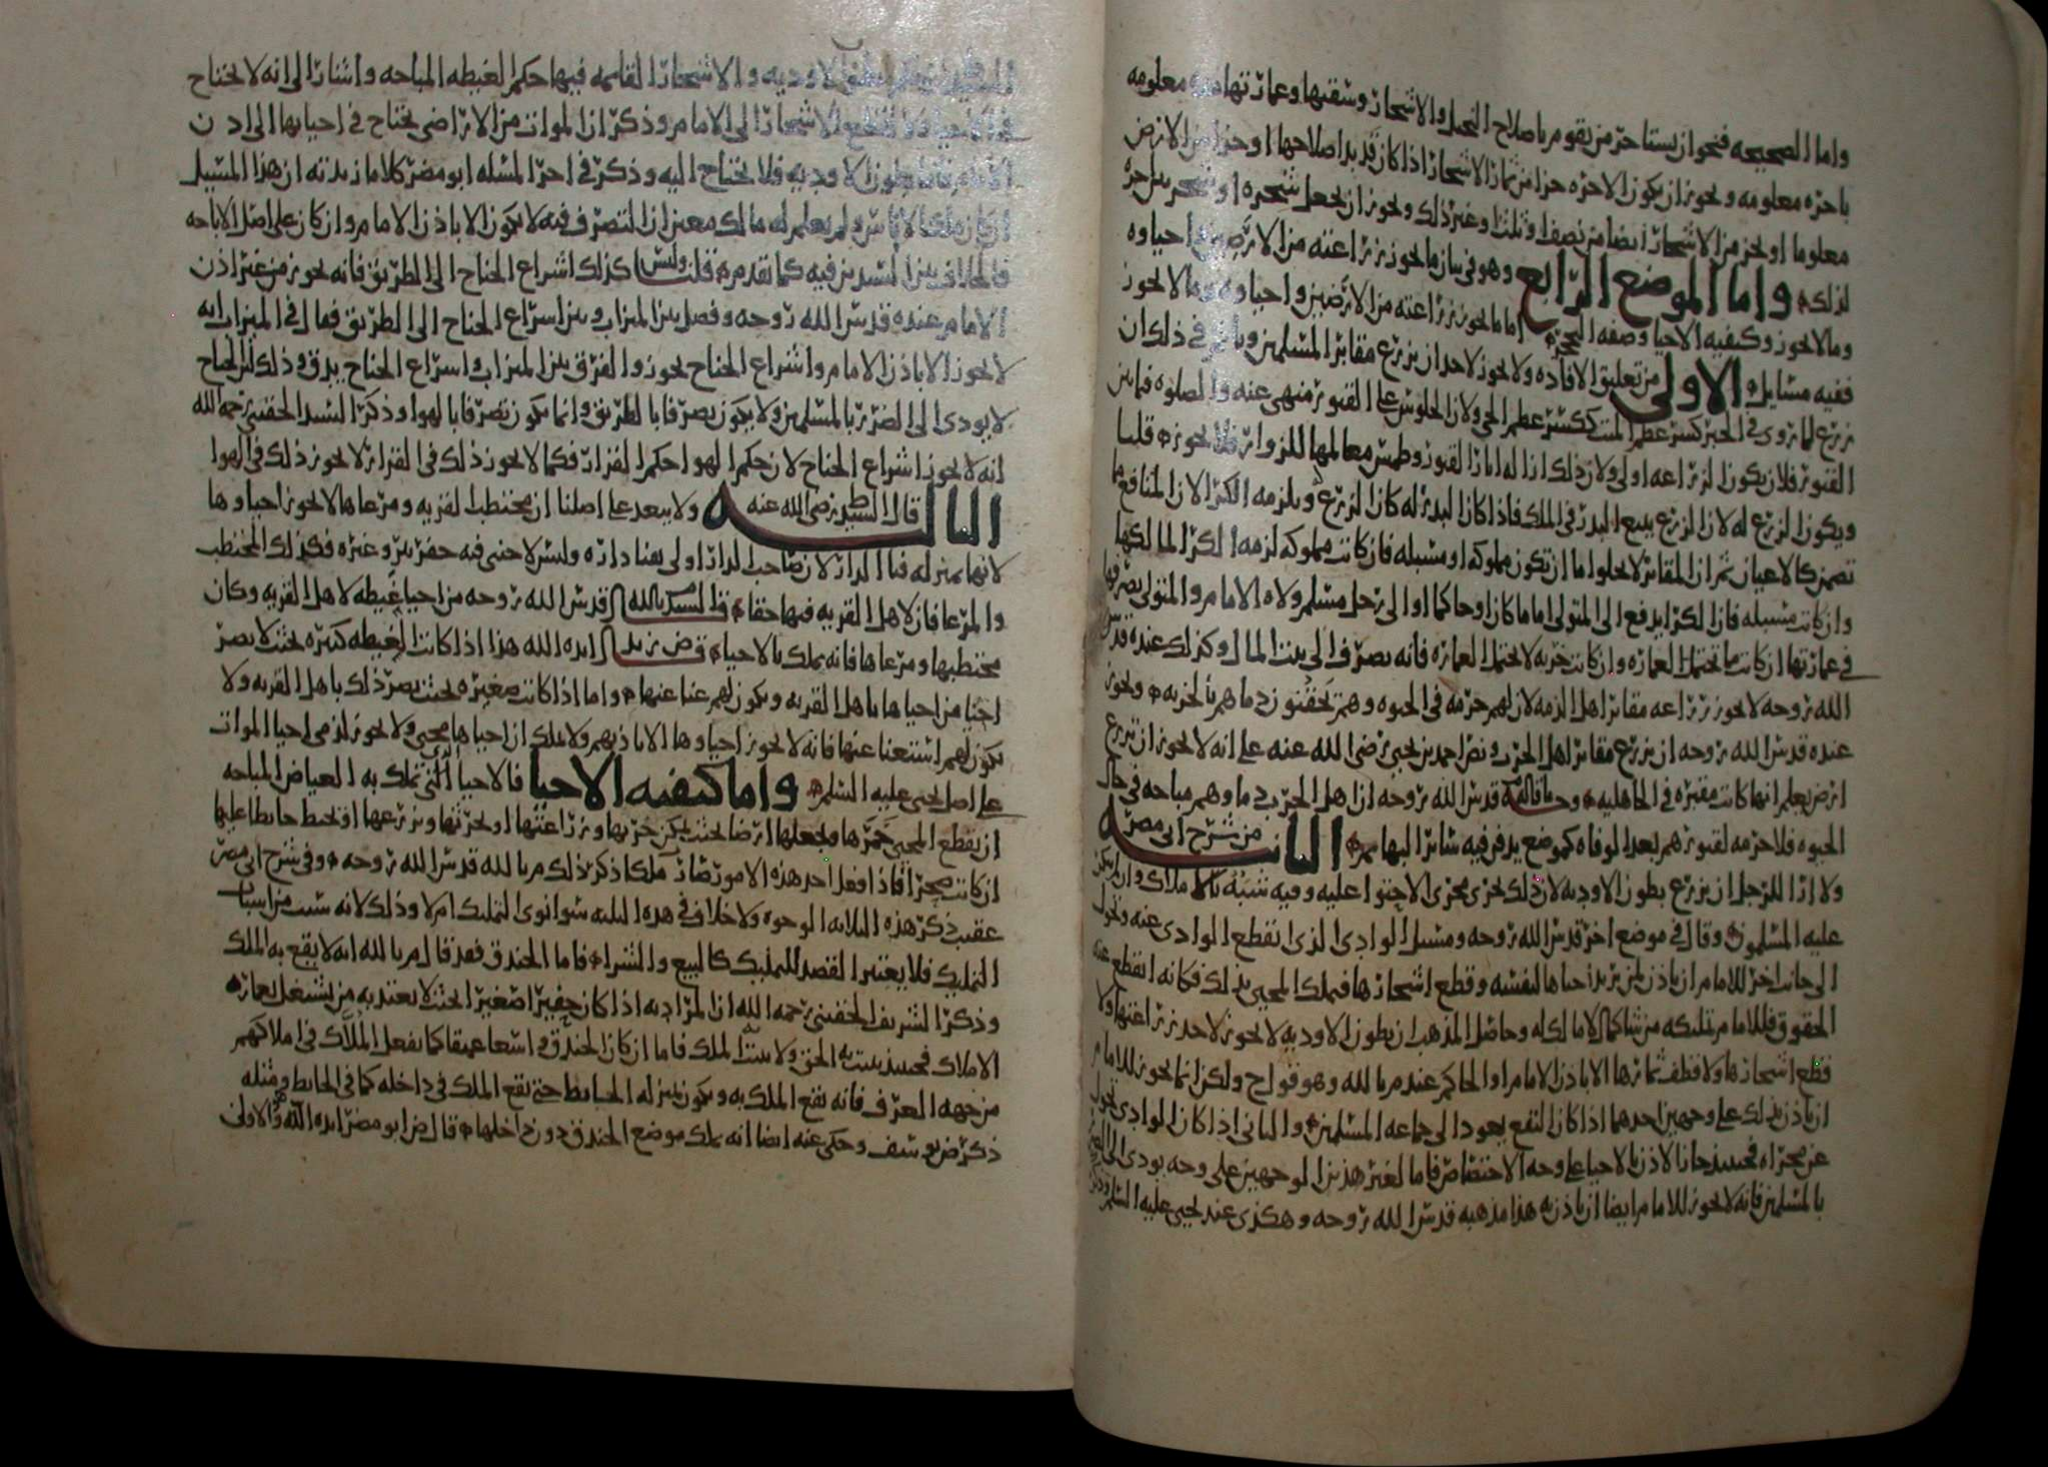 واما الصحيحه فنحو ان يستاجر من يقوم باصلاح النخل والاشجار وسقيها وعمارتها مده معلومه
باجره معلومه ويجوز ان يكون الاجره جزا من ثمار الاشجار اذا كان قد بدا صلاحها او جزا من الارض
معلوما او جزا من الاشجار ايضا من نصف او ثلث او غير ذلك ويجوز ان يجعل شجره او شجر بدل اجره
لذلك واما الموضع الرابع وهو في بيان ما يجوز زراعته من الارضين واحياوه
وما لا يجوز وكيفيه الاحيا وصفه التحجر اما ما يجوز زراعته من الارضين واحياوه وما لا يجوز
ففيه مسايل الاولى من تعليق الافاده ولا يجوز لاحد ان يزرع مقابر المسلمين في ذلك ان
يزرع لما روى في الخبر كسر عظم الميت ككسر عظم الحي ولان الجلوس على القبور منهي عنه والصلوه فيما بين
القبور فلان يكون الزراعه اولى ولان ذلك ازاله اثار القبور وطمس معالمها للزوار فلا يجوز قلنا
ويكون الزرع له لان الزرع يتبع البذر في الملك فاذا كان البذر له كان الزرع له ويلزمه الكرا لان المنافع
تضمن كالاعيان ثم ان المقابر لا يخلوا اما ان تكون مملوكه او مسبله فان كانت مملوكه لزمه الكرا لمالكها
وان كانت مسبله فان الكرا يدفع الى المتولي اماما كان او حاكما او الى رجل مسلم ولاه الامام والمتولي يصرفها
في عمارتها ان كانت مما تحتمل العماره وان كانت خربه لا يحتمل العماره فانه يصرف الى بيت المال وكذلك عنده قدس
الله روحه لا يجوز زراعه مقابر اهل الذمه لان لهم حرمه في الحيوه وهم يحقنون دماهم بالجزيه ويجوز
عنده قدس الله روحه ان يزرع مقابر اهل الحرب ونص احمد بن يحيى رضي الله عنه على انه لا يجوز ان يزرع
ارض يعلم انها كانت مقبره في الجاهليه وجه ما قاله قدس الله روحه ان اهل الحرب دماوهم مباحه في حال
الحيوه فلا حرمه لقبورهم بعد الوفاه كموضع يدفن فيه ساير البهايم الثانيه من شرح ابي مضر
ولا ارا للرجل ان يزرع بطون الاوديه لان ذلك يجري مجرى الاحتوا عليه وفيه شبه بالاملاك وان لم يكن
عليه المسلمون وقال في موضع اخر قدس الله روحه ومسيل الوادي الذي انقطع الوادي عنه وتحول
الى جانب اخر للامام ان ياذن لمن يريد احياها لنفسه وقطع اشجارها فيملك المحيي بذلك فكانه انقطع عنه
الحقوق فللامام تمليكه من شا كمال لا مالك له وحاصل المذهب ان بطون الاوديه لا يجوز لاحد زراعتها ولا
قطع اشجارها ولا قطف ثمارها الا باذن الامام او الحاكم عند م بالله وهو قول ح ولكن انما يجوز للامام
ان ياذن بذلك على وجهين احدهما اذا كان النفع يعود الى جماعه المسلمين والثاني اذا كان الوادي تحول
عن مجراه فحينئذ جاز الاذن بالاحيا على وجه الاختصاص فاما لغير هذين الوجهين على وجه يودي الى الضرر
بالمسلمين فانه لا يجوز للامام ايضا ان ياذن به هذا مذهبه قدس الله روحه وهكذى عند يحيى عليه السلم
الاوديه والاشجار القايمه فيها حكم الغيضه المباحه واشار الى انه لا يحتاج
في قطع الاشجار الى الامام وذكر ان الموات من الاراضي يحتاج في احيايها الى اذن
الامام فاما بطون الاوديه فلا يحتاج اليه وذكر في اخر المسله ابو مضر كلاما زبدته ان هذا المسيل
ان كان ملكا لاناس ولم يعلم له مالك معين ان التصرف فيه لا يكون الا باذن الامام وان كان على اصل الاباحه
فالخلاف بين السيدين فيه كما تقدم قلت وليس كذلك اشراع الجناح الى الطريق فانه يجوز من غير اذن
الامام عنده قدس الله روحه وفصل بين الميزاب وبين اشراع الجناح الى الطريق فقال في الميزاب انه
لا يجوز الا باذن الامام واشراع الجناح يجوز والفرق بين الميزاب واشراع الجناح يدق وذلك ان الجناح
لا يودي الى الضرر بالمسلمين ولا يكون تصرفا بالطريق وانما يكون تصرفا بالهوا وذكر السيد الحقيني رحمه الله
انه لا يجوز اشراع الجناح لان حكم الهوا حكم القرار فكما لا يجوز ذلك في القرار لا يجوز ذلك في الهوا
الثالثه قال السيد رضي الله عنه ولا يبعد على اصلنا ان محتطب القريه ومرعاها لا يجوز احياوها
لانها بمنزله فنا الدار لان صاحب الدار اولى بفنا داره وليس لاجنبي فيه حفر بير وغيره فكذلك المحتطب
والمرعا فان لاهل القريه فيها حقا قال السيد م بالله قدس الله روحه من احيا غيضه لاهل القريه وكان
محتطبها ومرعاها فانه يملك بالاحياء ق ض زيد ايده الله هذا اذا كانت الغيضه كبيره بحيث لا يضر
احيا من احياها باهل القريه ويكون لهم غنا عنها واما اذا كانت صغيره بحيث يضر ذلك باهل القريه ولا
يكون لهم استغنا عنها فانه لا يجوز احياوها الا باذنهم ولا يملك ان احياها محيي ولا يجوز لذمي احيا الموات
على اصل يحيى عليه السلم واما كيفيه الاحيا فالاحيا الذي تملك به الغياض المباحه
ان يقطع المحيي خمرها ويجعلها ارضا بحيث يمكن حرثها وزراعتها او يحرثها ويزرعها او يحيط حايطا عليها
ان كانت صحرا فاذا فعل احد هذه الامور صار ملكا ذكر ذلك م بالله قدس الله روحه وفي شرح ابي مضر
عقيب ذكر هذه الثلاثه الوجوه ولا خلاف في هذه الثلثه سوا نوى التمليك ام لا وذلك لانه سبب من اسباب
التمليك فلا يعتبر القصد للتمليك كالبيع والشراء فاما الخندق فقد قال م بالله انه لا يقع به الملك
وذكر الشريف الحقيني رحمه الله ان المراد به اذا كان حفيرا صغيرا بحيث لا يعتد به من يشتغل بعماره
الاملاك فحينئذ يثبت به الحق ولا يثبت الملك فاما ان كان الخندق واسعا عميقا كما يفعل الملاك في املاكهم
من جهه العرف فانه يقع الملك به ويكون بمنزله الحايط حتى يقع الملك في داخله كما في الحايط ومثله
ذكر ض يوسف وحكى عنه ايضا انه يملك موضع الخندق دون داخلها قال ض ابو مضر ايده الله والاولى